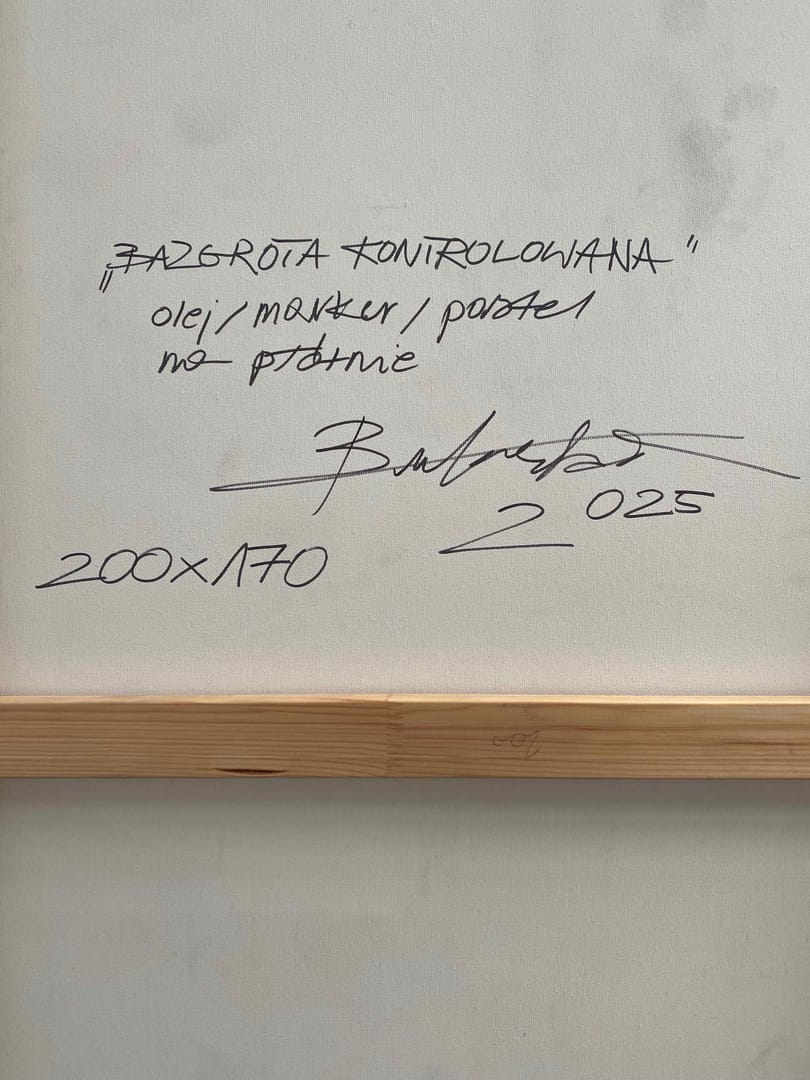 „BAZGROTA KONTROLOWANA"
olej/marker/pastel
na płótnie
2025
200x170